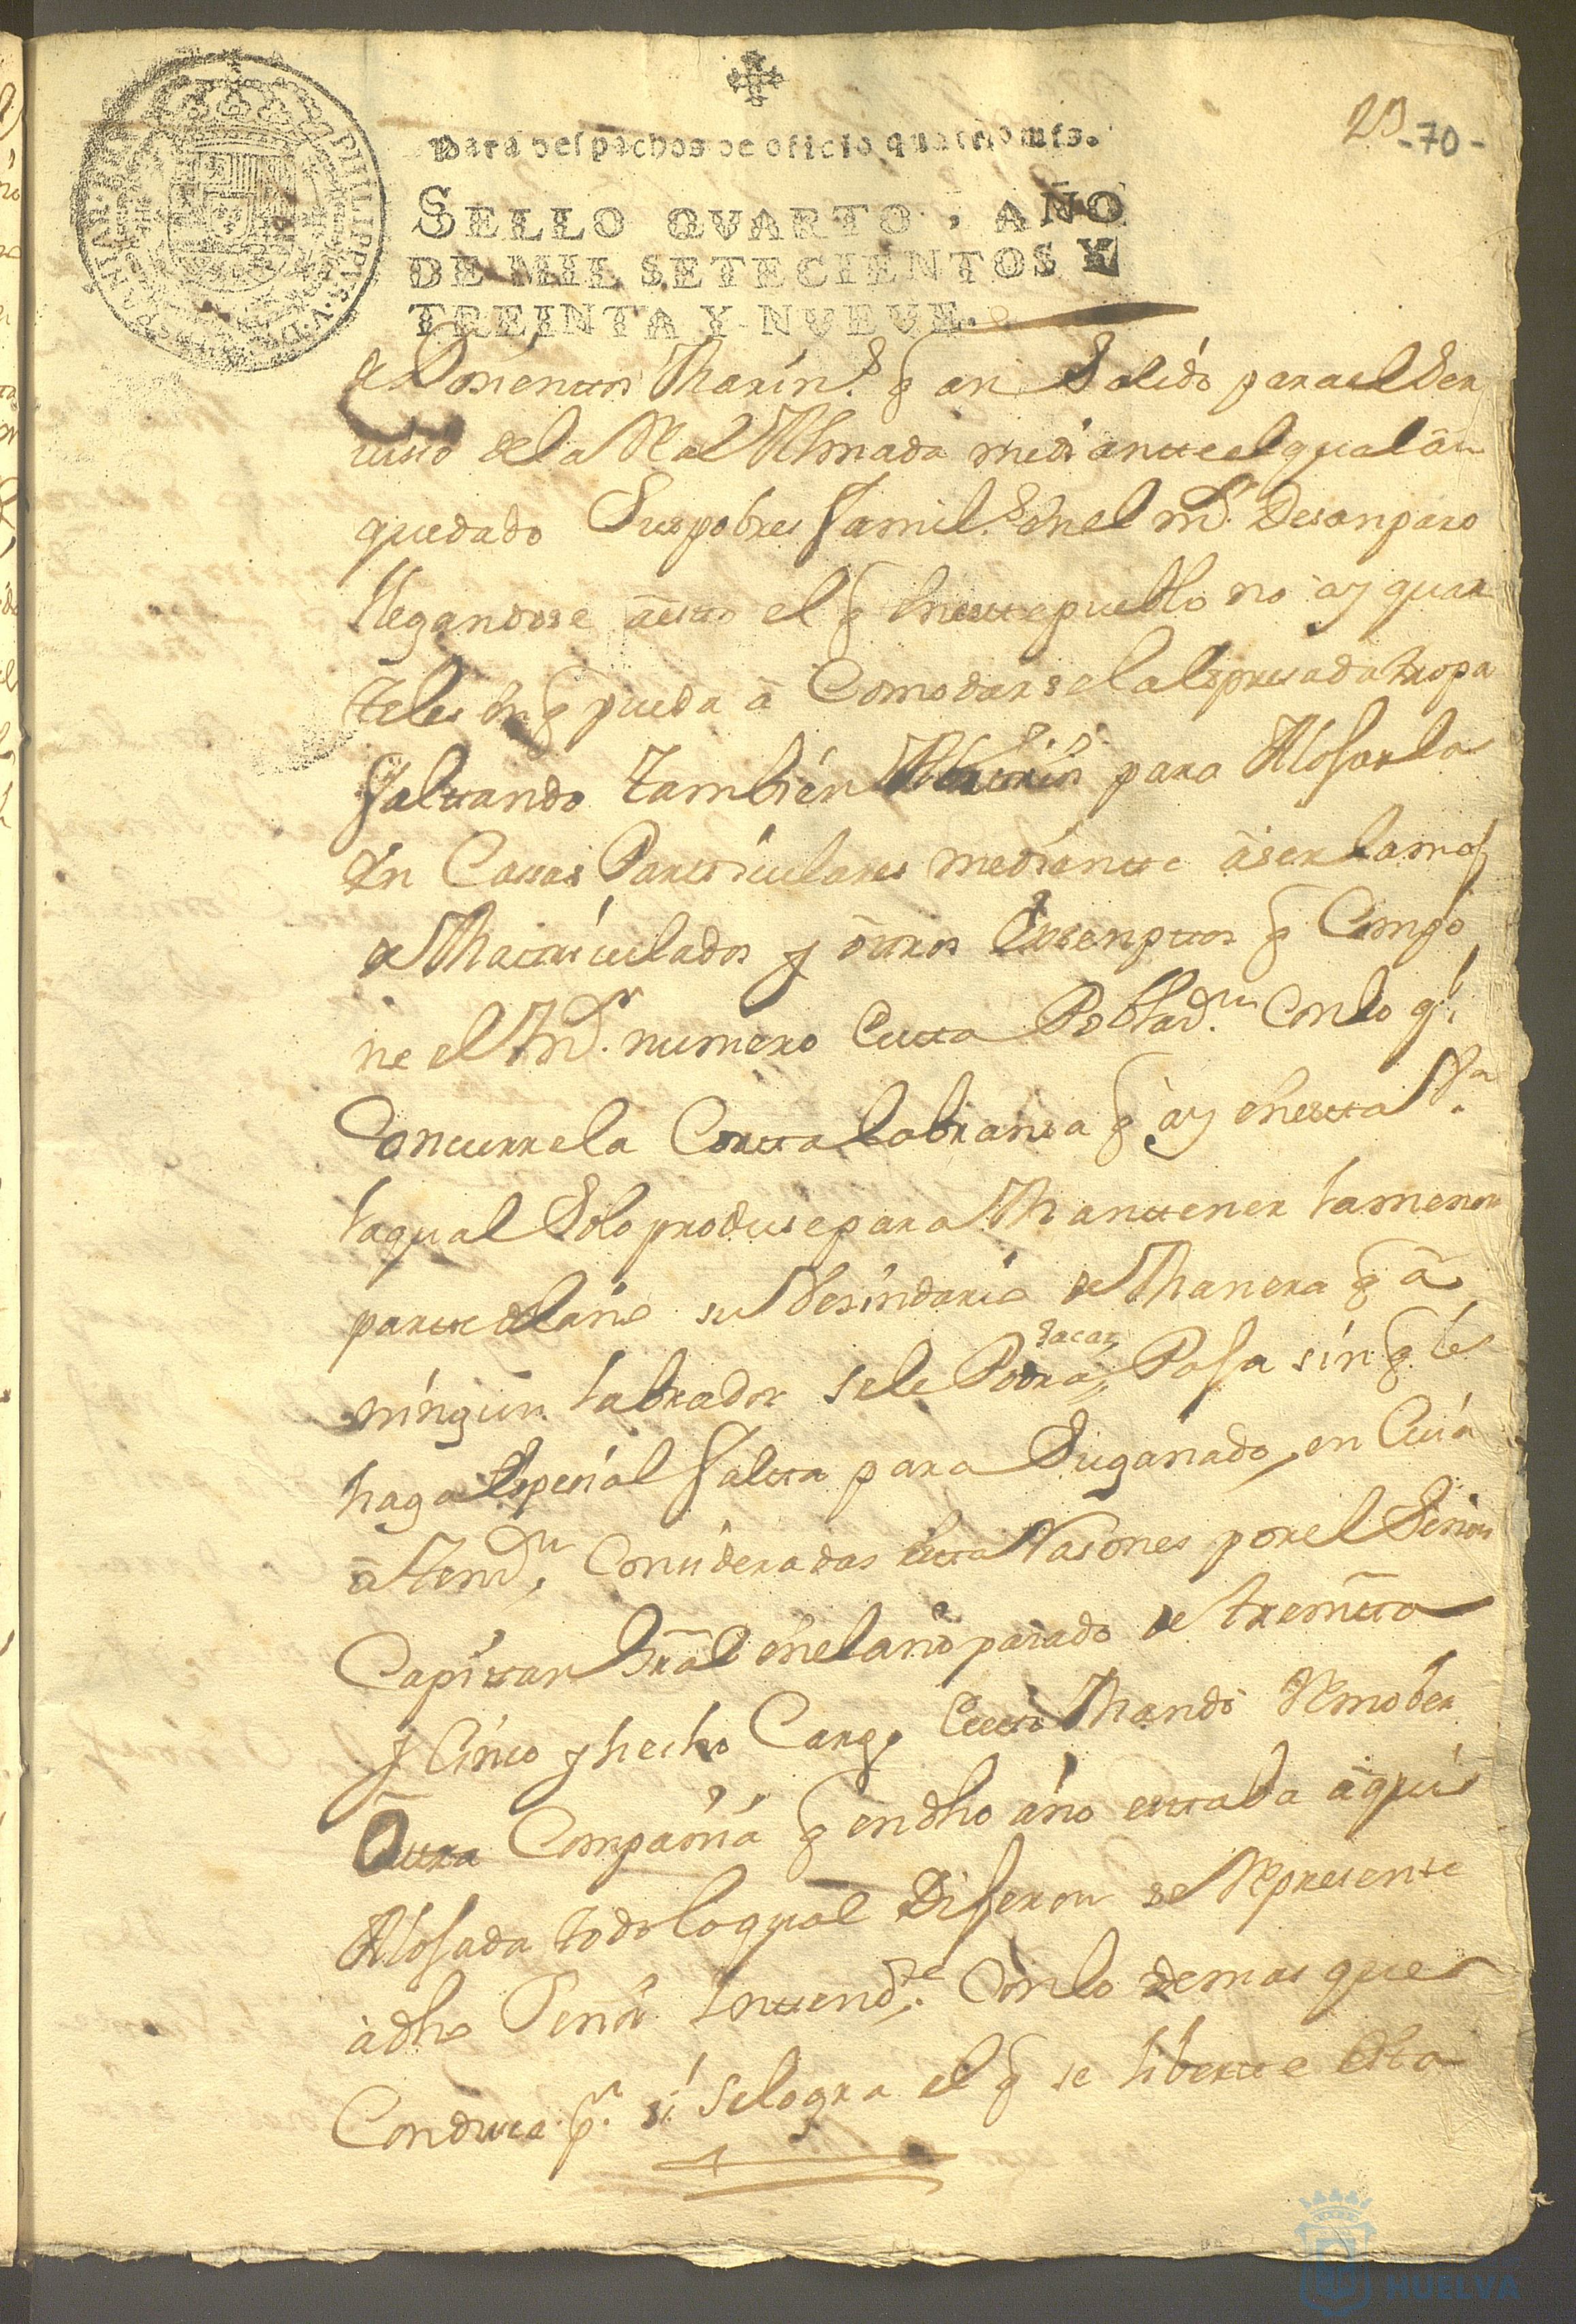 23
-70-
PHILIPPVS.V.D.G
Para despachos de oficio quatro mrs.
SELLO QVARTO, AÑO
DE MIL SETECIENTOS Y
TREINTA Y NVEVE.
Dosientos Marin.s q an Salido para el Ser
uisio de la Real Armada mediante el qual an
quedado Sus pobres famil.s en el m.r Desanparo
llegandose a esto el q en este pueblo no ay quar
teles en q pueda acomodarse la espresada tropa
faltando tambien para Alojarla
En Casas Particulares mediante a ser la mas
Matriculados y otros Exsenptos q Compo
ne el m.r numero Esta Poblas.n Con lo q.l
Concurre la Corta labransa q ay en esta V.a
la qual Solo produse para Mantener la menor
parte del año su Vesindario de Manera q a
ningun labrador se le Podra sacar Paja sin q le
haga Espesial falta para Su ganado en Cuia
atens.n Consideradas Estas Rasones por el Señor
Capitan Gral en el año pasado de treinta
y Cinco y hecho Cargo Mando Remober
Otra Compañia q en dho año estaba aqui
Alojada todo lo qual Dijeron se Represente
a dho Señor Intend.te Con lo demas que
Condusca p.a si se logra el q se liberte Esta
HUELVA